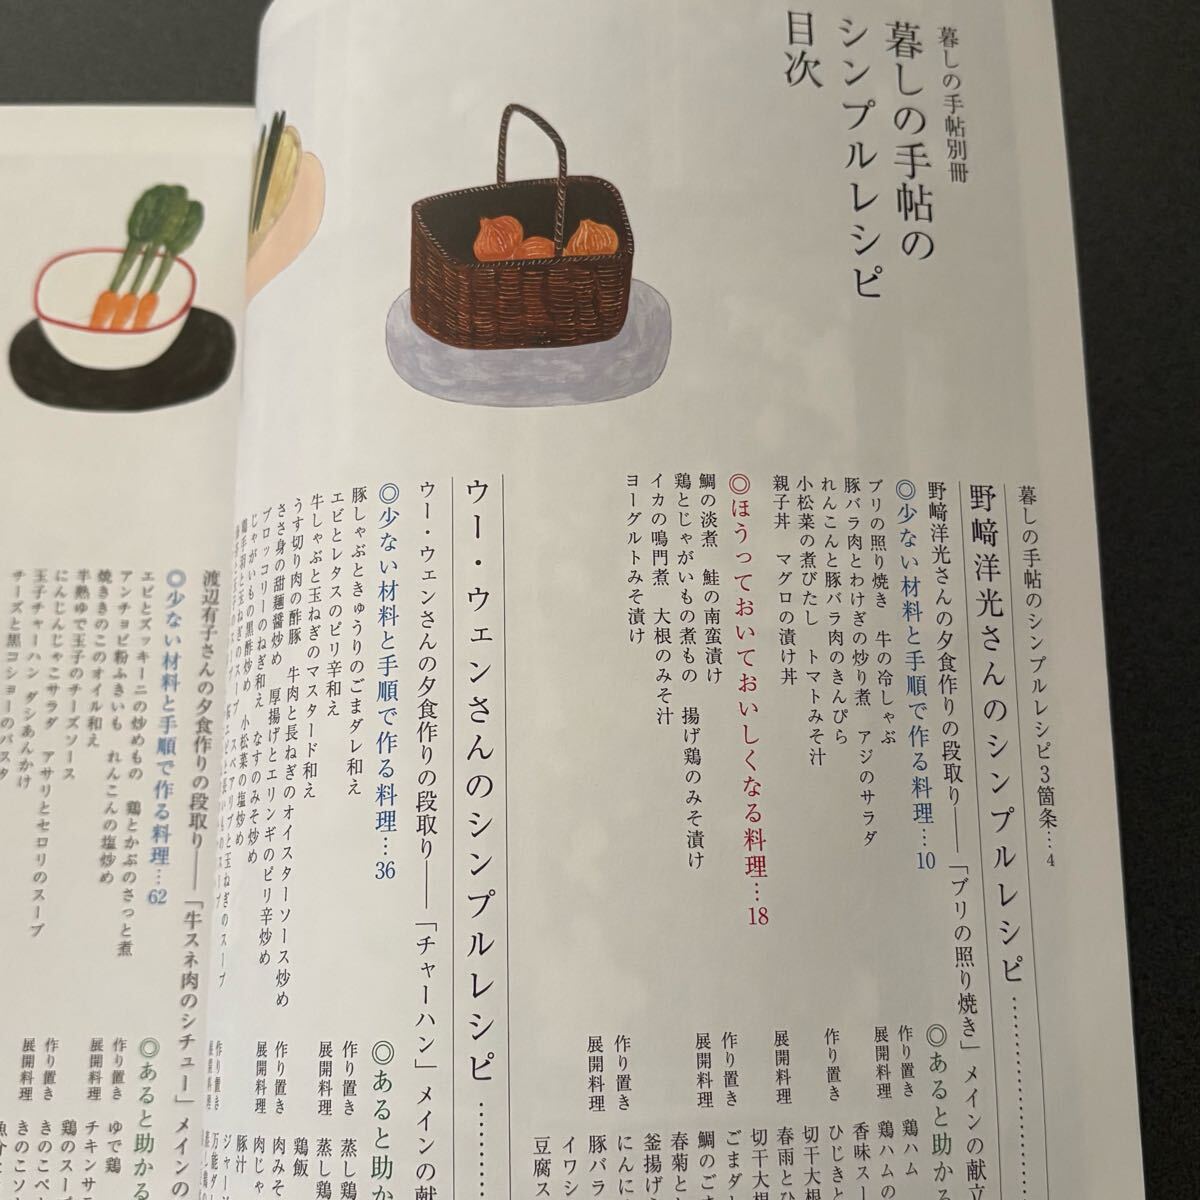 暮しの手帖別冊
暮しの手帖の
シンプルレシピ
目次
暮しの手帖のシンプルレシピ3箇条…4
野﨑洋光さんのシンプルレシピ…………
野﨑洋光さんの夕食作りの段取り――「ブリの照り焼き」メインの献立
◎少ない材料と手順で作る料理…10
ブリの照り焼き 牛の冷しゃぶ
豚バラ肉とわけぎの炒り煮 アジのサラダ
れんこんと豚バラ肉のきんぴら
小松菜の煮びたし トマトみそ汁
親子丼 マグロの漬け丼
◎ほうっておいておいしくなる料理…18
鯛の淡煮 鮭の南蛮漬け
鶏とじゃがいもの煮もの 揚げ鶏のみそ漬け
イカの鳴門煮 大根のみそ汁
ヨーグルトみそ漬け
◎あると助かる
作り置き 鶏ハム
展開料理 鶏ハムの
香味スー
作り置き ひじきと
切干大根
展開料理 春雨とひ
切干大
作り置き ごまダレ
展開料理 鯛のごま
春菊と
釜揚げう
作り置き にんに
展開料理 豚バラ
イワシ
豆腐ス
ウー・ウェンさんのシンプルレシピ…………
ウー・ウェンさんの夕食作りの段取り――「チャーハン」メインの献
◎少ない材料と手順で作る料理…36
豚しゃぶときゅうりのごまダレ和え
エビとレタスのピリ辛和え
牛しゃぶと玉ねぎのマスタード和え
うす切り肉の酢豚 牛肉と長ねぎのオイスターソース炒め
ささ身の甜麺醤炒め 厚揚げとエリンギのピリ辛炒め
ブロッコリーのねぎ和え なすのみそ炒め
じゃがいもの黒酢炒め 小松菜の塩炒め
鶏手羽と玉ねぎのスープ スペアリブと玉ねぎのスープ
◎あると助か
作り置き 蒸し鶏
展開料理 蒸し鶏
鶏飯
作り置き 肉みそ
展開料理 肉じゃ
豚汁
作り置き ジャー
展開料理 万能ダ
渡辺有子さんの夕食作りの段取り――「牛スネ肉のシチュー」メインの
◎少ない材料と手順で作る料理…62
エビとズッキーニの炒めもの 鶏とかぶのさっと煮
アンチョビ粉ふきいも れんこんの塩炒め
焼ききのこのオイル和え
半熟ゆで玉子のチーズソース
にんじんじゃこサラダ アサリとセロリのスープ
玉子チャーハン ダシあんかけ
チーズと黒コショーのパスタ
◎あると助かる
作り置き ゆで鶏
展開料理 チキンサラ
鶏のスー
作り置き きのこペ
展開料理 きのこソ